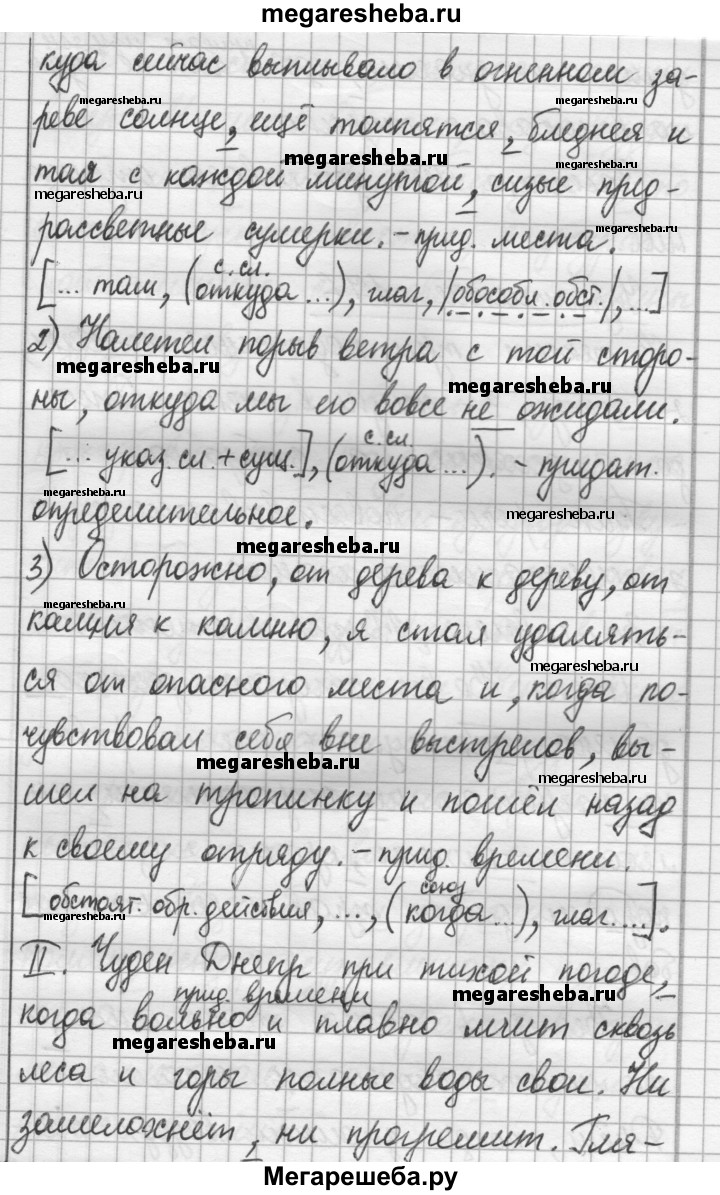 megaresheba.ru
куда сейчас выплывало в огненном за-
megaresheba.ru megaresheba.ru
реве солнце, ещё толпятся, бледнея и
megaresheba.ru
тая с каждой минутой, сизые пред-
megaresheba.ru megaresheba.ru
рассветные сумерки. – прид. места.
с. сл.
[... там, (откуда ...), глаг, |обособл. обст.|, ...]
2) Налетел порыв ветра с той сторо-
megaresheba.ru megaresheba.ru
ны, откуда мы его вовсе не ожидали.
с. сл.
[... указ. сл. + сущ.], (откуда ...). – придат.
megaresheba.ru
определительное.
megaresheba.ru
megaresheba.ru
3) Осторожно, от дерева к дереву, от
megaresheba.ru
камня к камню, я стал удалять-
megaresheba.ru
ся от опасного места и, когда по-
чувствовал себя вне выстрелов, вы-
megaresheba.ru megaresheba.ru
шел на тропинку и пошёл назад
к своему отряду. – прид. времени.
союз
[обстоят. обр. действия, ..., (когда ...), глаг. ...].
megaresheba.ru
II. Чуден Днепр при тихой погоде,
прид. времени megaresheba.ru
когда вольно и плавно мчит сквозь
megaresheba.ru
леса и горы полные воды свои. Ни
зашелохнёт, ни прогремит. Гля-
Мегарешеба.ру